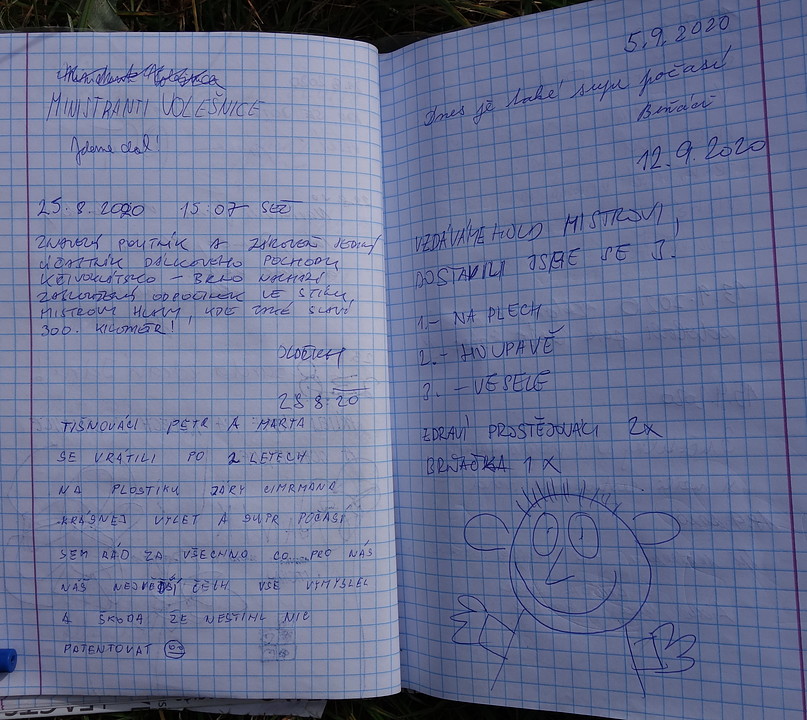 MINISTRANTI VOLEŠNICE
Jdeme dál!
25.8.2020 15:07 SEČ
ZNAVENÝ POUTNÍK A ZÁROVEŇ JEDINÝ
ÚČASTNÍK DÁLKOVÉHO POCHODU
KŘIVOKLÁTSKO – BRNO NACHÁZÍ
ZASLOUŽENÝ ODPOČINEK VE STÍNU
MISTROVY HLAVY, KDE TAKÉ SLAVÍ
300. KILOMETR!
28.8.20
TIŠNOVÁCI PETR A MARTA
SE VRÁTILI PO 2 LETECH
NA PLOSTIKU JÁRY CIMRMANA
KRÁSNEJ VÝLET A SUPR POČASÍ
SEM RÁD ZA VŠECHNO CO PRO NÁS
NÁŠ NEJVĚTŠÍ ČECH VŠE VYMYSLEL
A ŠKODA ŽE NESTIHL NIC
PATENTOVAT
5.9.2020
Dnes je také supr počasí
Brňáci
12.9.2020
VZDÁVÁME HOLD MISTROVI,
DOSTAVILI JSME SE 3!
1. – NA PLECH
2. – HOUPAVĚ
3. – VESELE
ZDRAVÍ PROSTĚJOVÁCI 2x
BRŇAČKA 1x